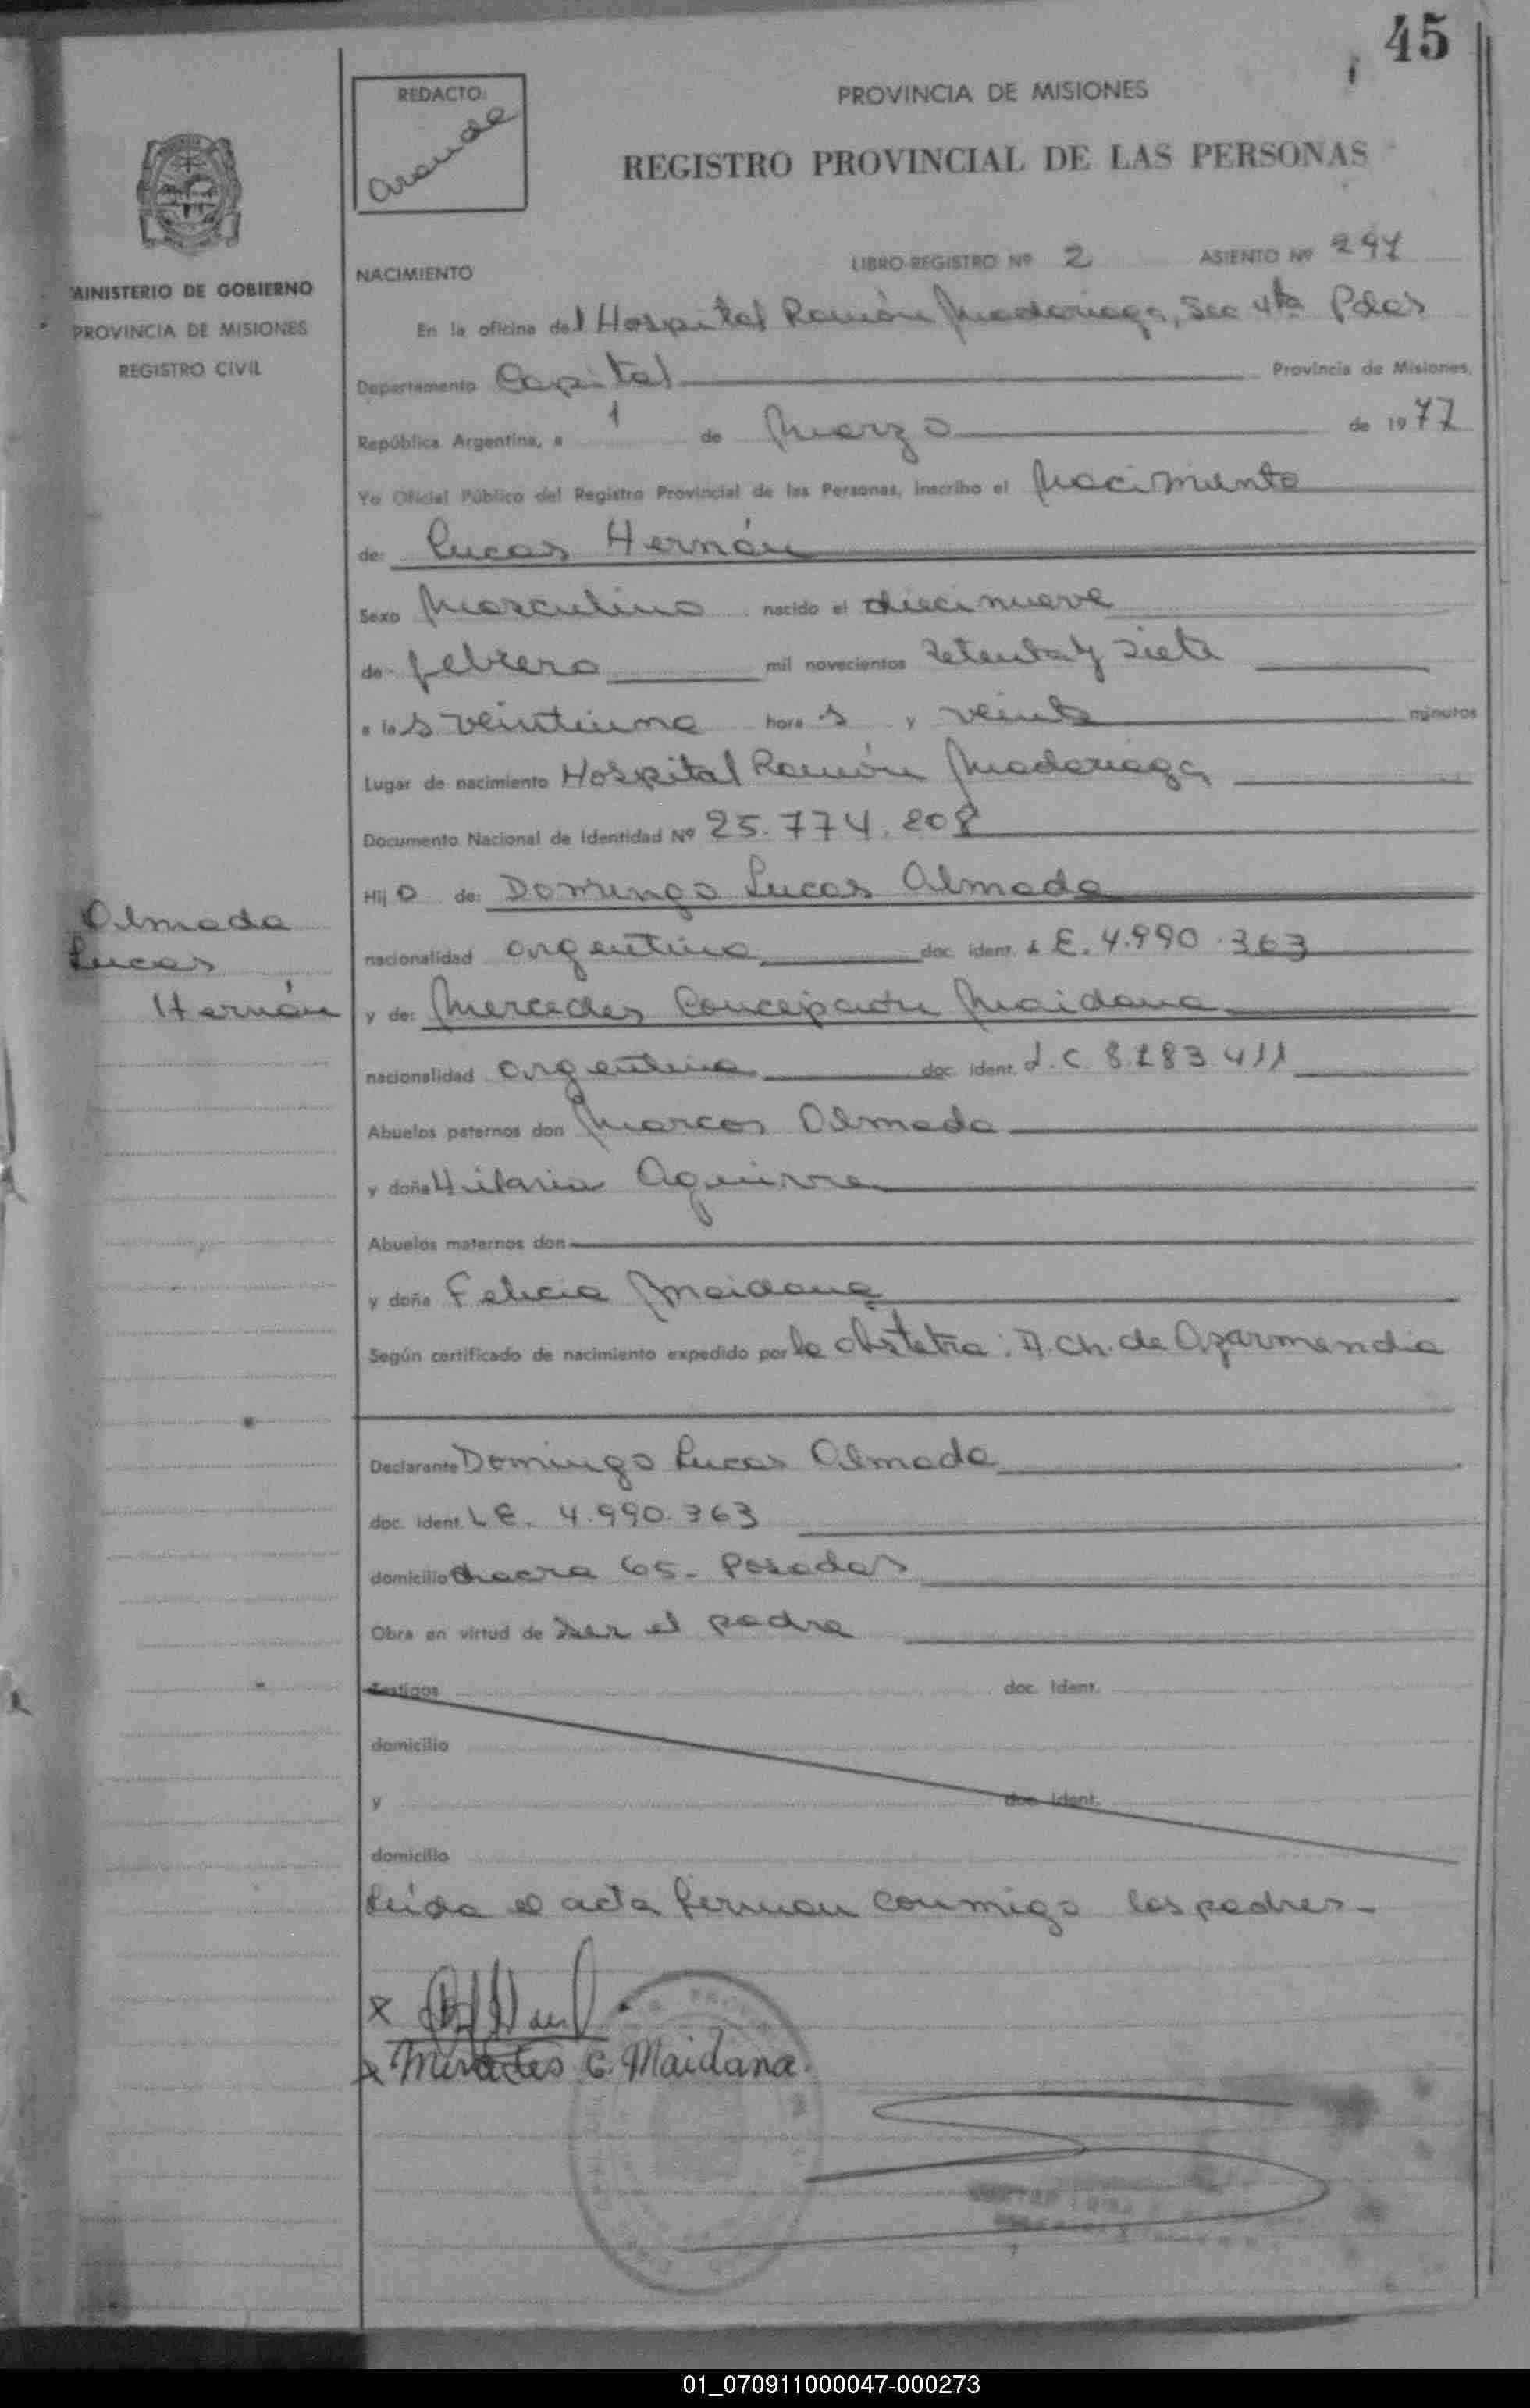 45
REDACTO:
Arande
PROVINCIA DE MISIONES
REGISTRO PROVINCIAL DE LAS PERSONAS
MINISTERIO DE GOBIERNO
PROVINCIA DE MISIONES
REGISTRO CIVIL
NACIMIENTO LIBRO-REGISTRO Nº 2 ASIENTO Nº 247
En la oficina del Hospital Ramón Madariaga, Sec 4ta Pdas
Departamento Capital Provincia de Misiones,
República Argentina, a 1 de Marzo de 1977
Yo Oficial Público del Registro Provincial de las Personas, inscribo el Nacimiento
de: Lucas Hernán
Sexo Masculino nacido el diecinueve
de febrero mil novecientos setenta y siete
a las veintiuna horas y veinte minutos
Lugar de nacimiento Hospital Ramón Madariaga
Documento Nacional de Identidad Nº 25.774.208
Hijo de: Domingo Lucas Almada
Almada
Lucas
Hernán
nacionalidad argentina doc. ident. L E. 4.990.363
y de: Mercedes Concepción Maidana
nacionalidad argentina doc. ident. L.C. 8.283.411
Abuelos paternos don Marcos Almada
y doña Hilaria Aguirre
Abuelos maternos don
y doña Felicia Maidana
Según certificado de nacimiento expedido por la obstetra: A. Ch. de Azarmendia
Declarante Domingo Lucas Almada
doc. ident. L E. 4.990.363
domicilio chacra 65 - Posadas
Obra en virtud de ser el padre
Testigos doc. Ident.
domicilio
y doc. Ident.
domicilio
Leída el acta firman conmigo los padres -
x
x Mercedes C. Maidana
01_070911000047-000273